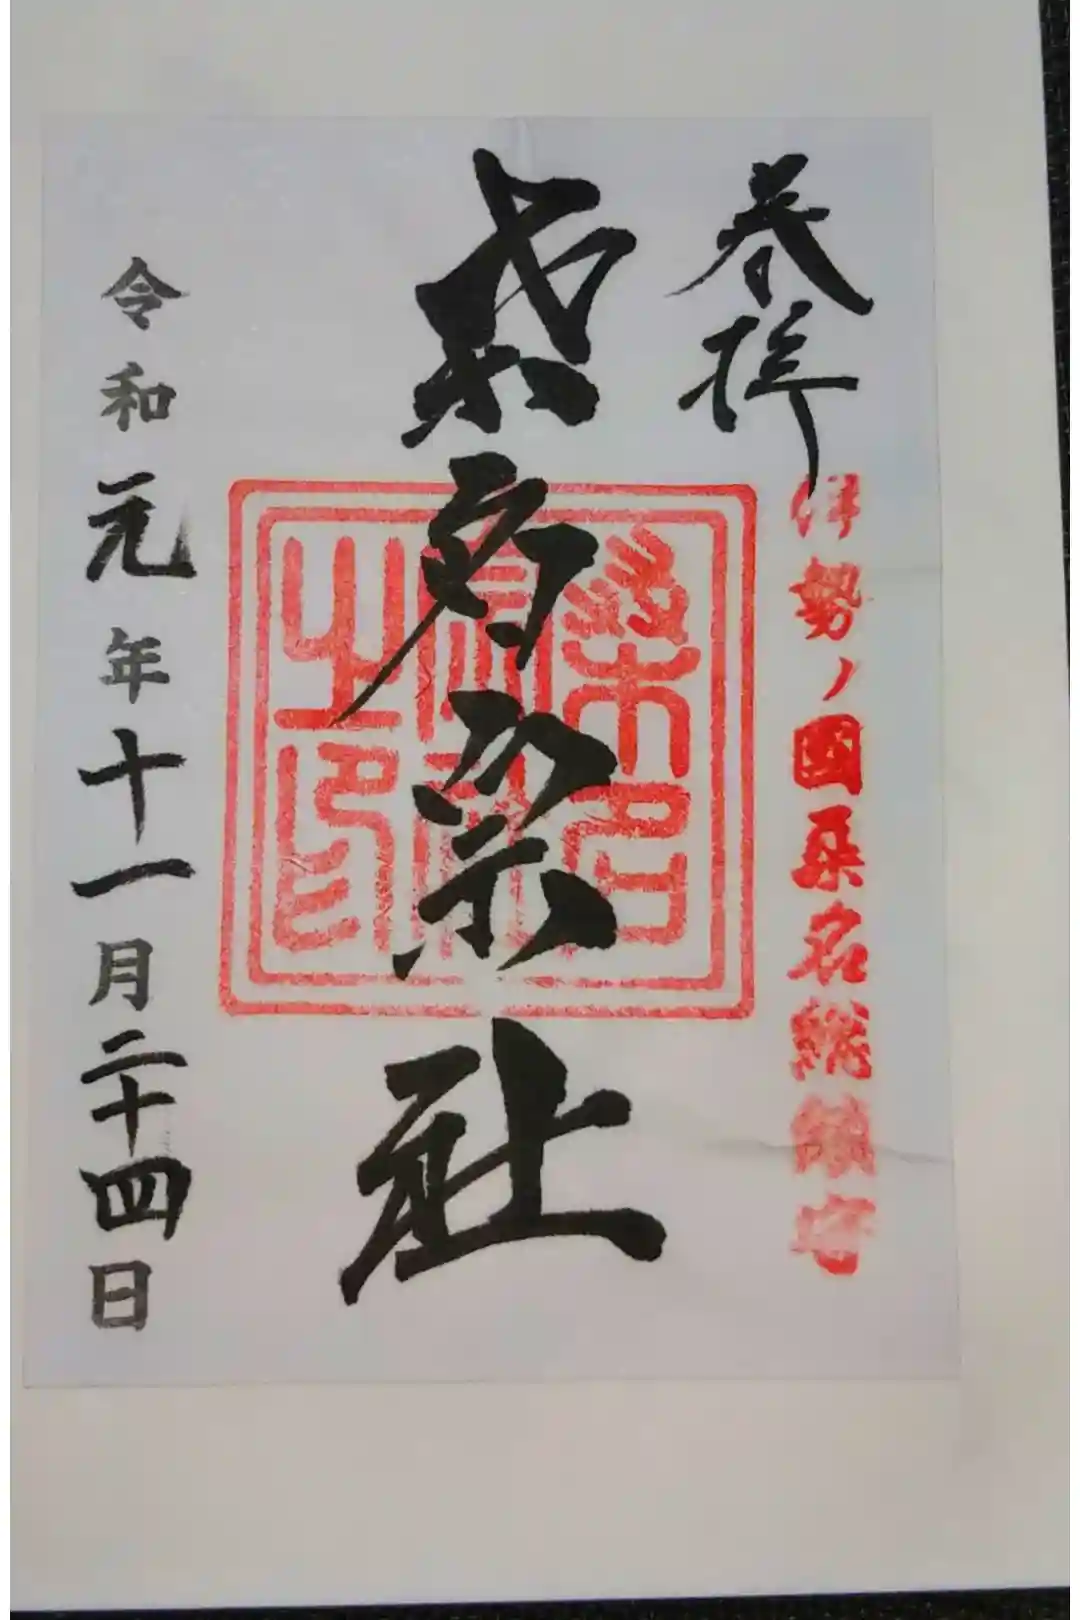 参拝
伊勢ノ國桑名総鎮守
桑名宗社
桑名
之印
令和元年十一月二十四日